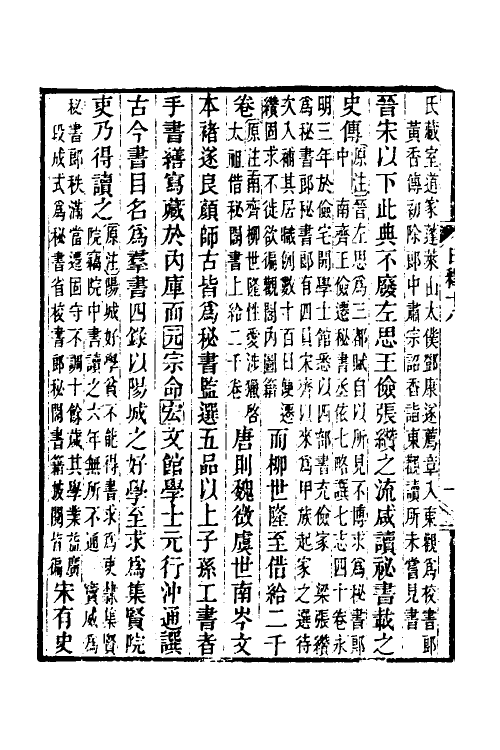 氏藏室道家蓬萊山太僕鄧康遂薦章入東觀爲校書郎
黃香傳初除郎中肅宗詔香詣東觀讀所未嘗見書
晉宋以下此典不廢左思王儉張纘之流咸讀祕書載之
史傳原注晉左思爲三都賦自以所見不博求爲祕書郎
中 南齊王儉遷秘書丞依七略譔七志四十卷永
明三年於儉宅開學士館悉以四部書充儉家 梁張纘
爲秘書郎書郎有四員宋齊以來爲甲族起家之選待
次入補其居職例數十百日便遷
纘固求不徙欲徧觀閣内圖籍而柳世隆至借給二千
卷原注南齊柳世隆性愛涉獵啓
太祖借秘閣書上給二千卷 唐則魏徵虞世南岑文
本褚遂良顏師古皆爲秘書監選五品以上子孫工書者
手書繕寫藏於內庫而元宗命宏文館學士元行沖通譔
古今書目名爲羣書四錄以陽城之好學至求爲集賢院
吏乃得讀之原注陽城好學貧不能得書求爲吏隸集賢
院竊院中書讀之六年無所不通 竇威爲
秘書郎秩滿當遷固守不調十餘歲其學業益廣
段成式爲秘書省校書郎秘閣書籍披閱皆徧宋有史